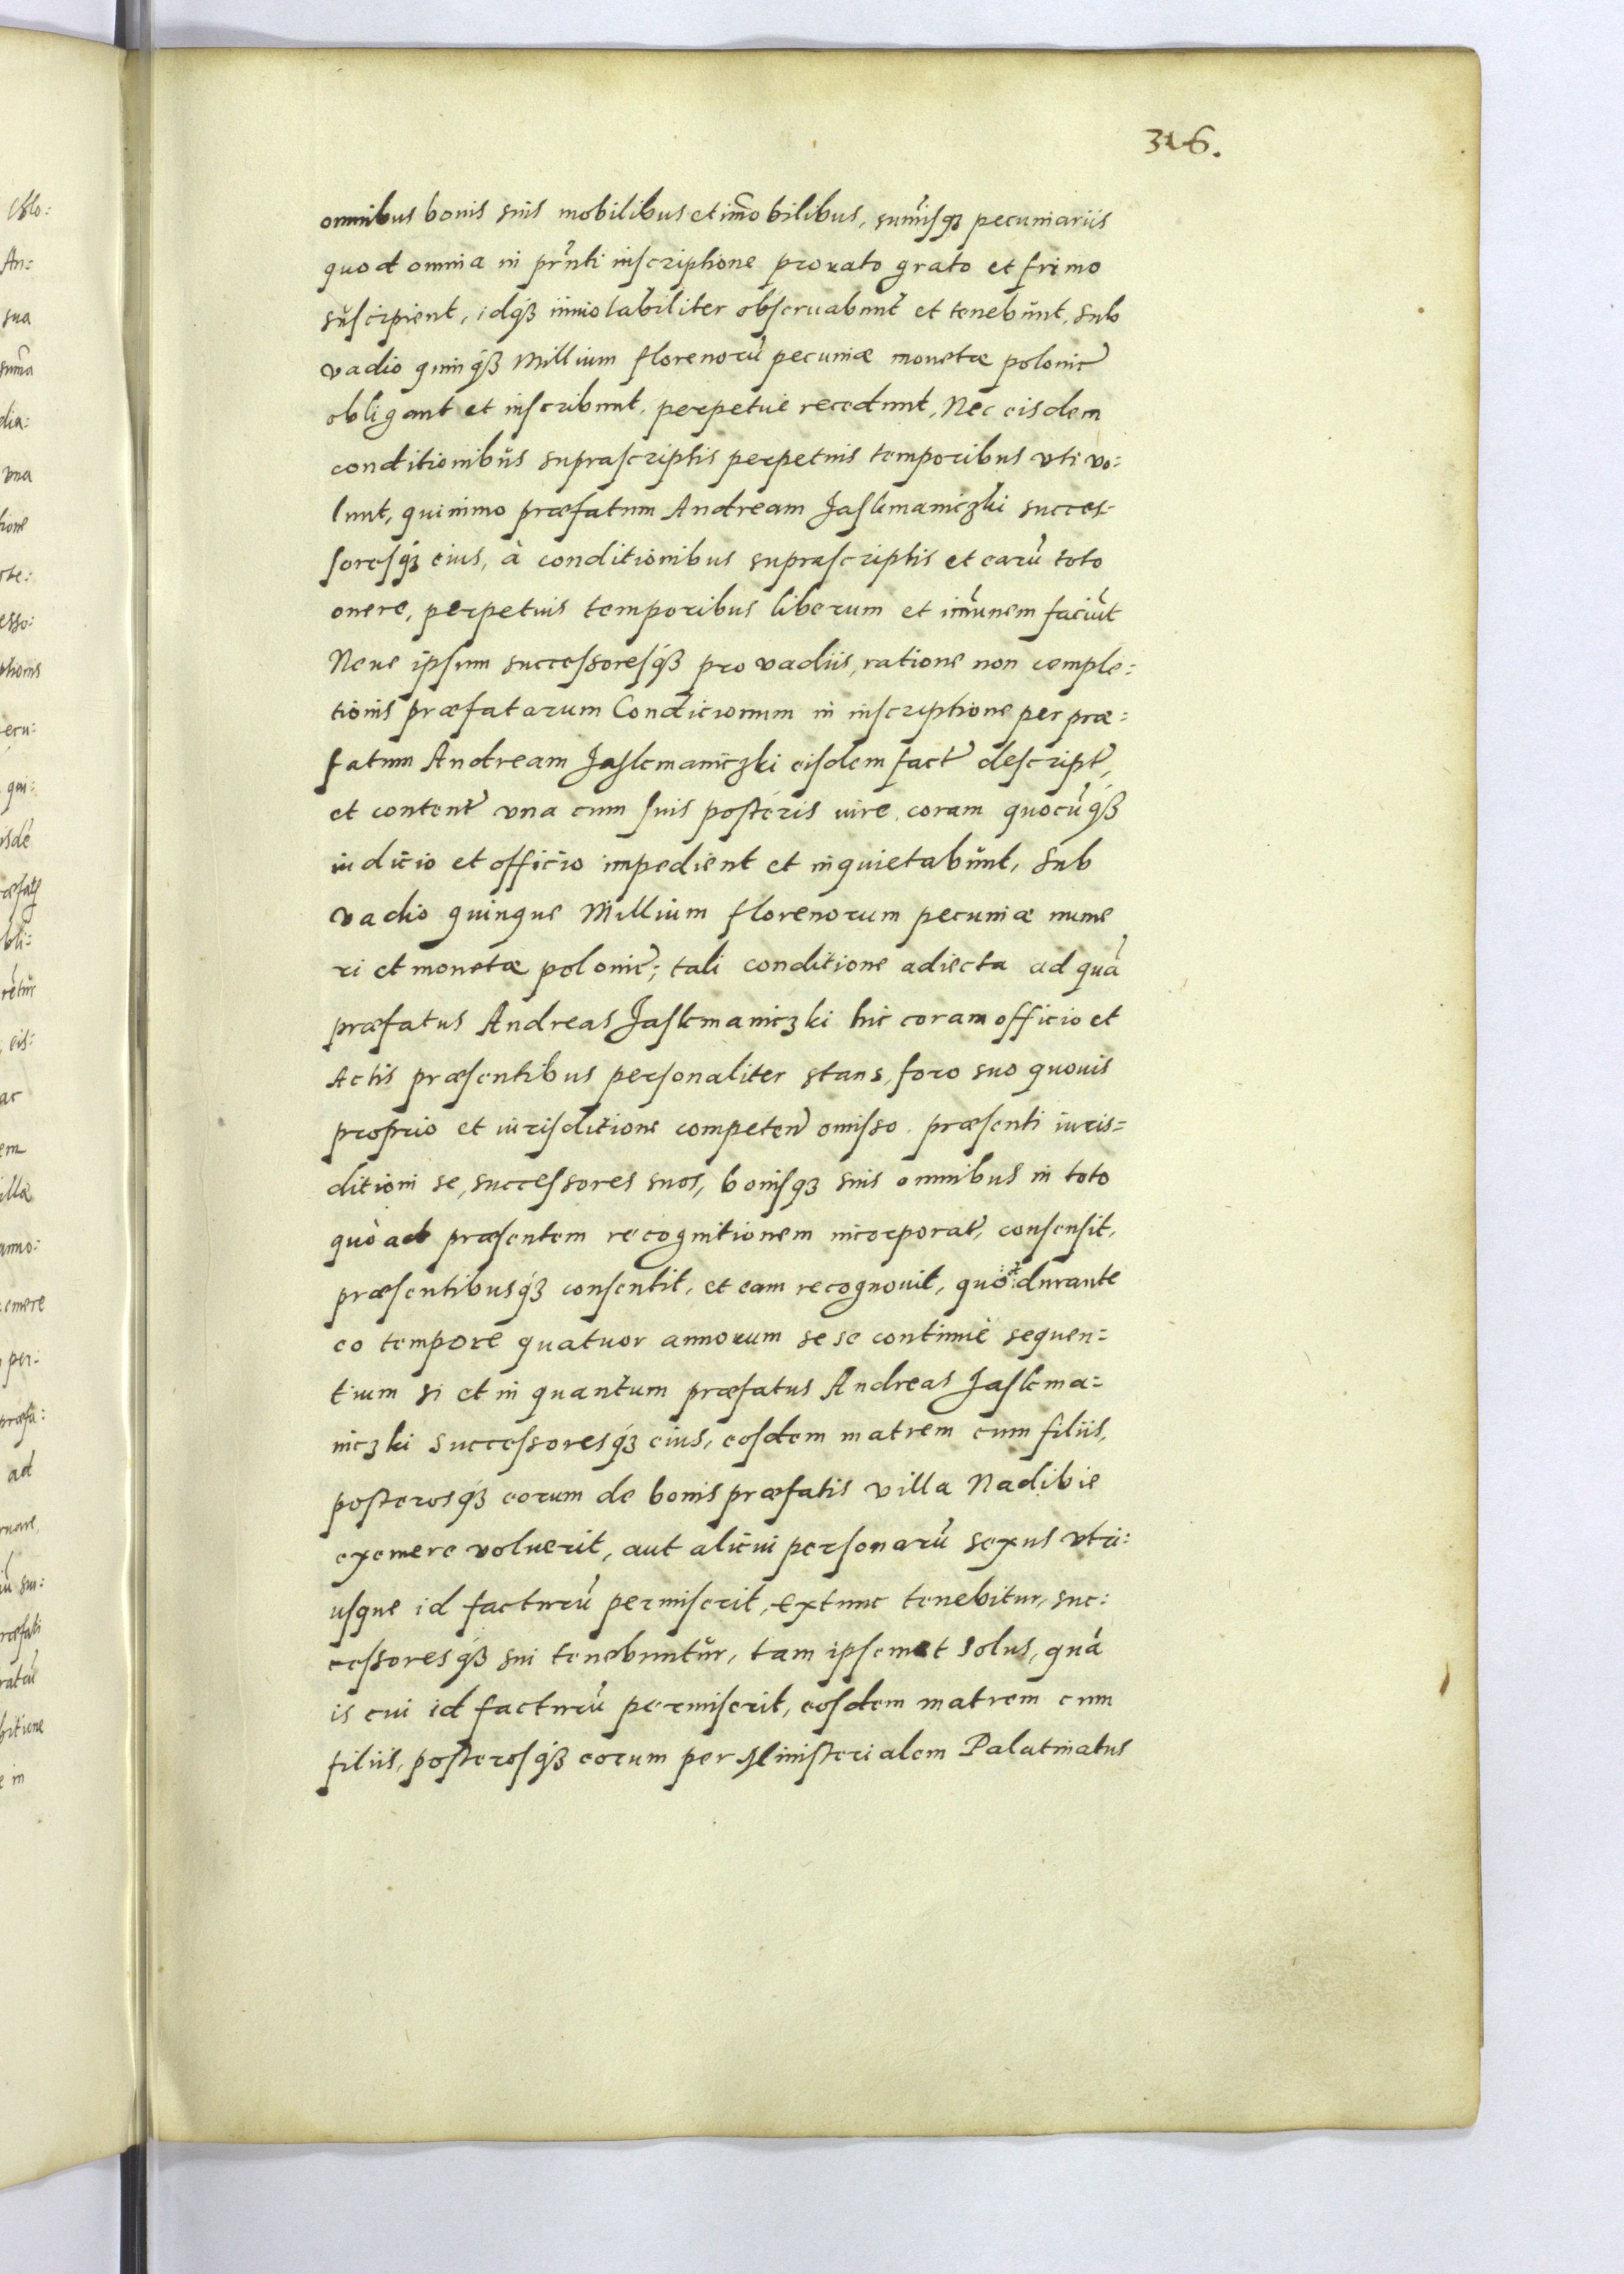 316.
omnibus bonis suis mobilibus et im̃obilibus, sum̃isqȝ pecuniariis
quod omnia in pr̃nti inscriptione pro rato grato et frimo
suscipient, idqȝ inviolabiliter observabunt et tenebunt, sub
vadio quinqȝ Millium florenorũ pecuniæ monetæ polonic̃
obligant et inscribunt, perpetue recedunt, Nec eisdem
conditionibus suprascriptis perpetuis temporibus vti vo:
lunt, quinimo præfatum Andream Jaskmaniczki succes-
soresqȝ eius, à conditionibus suprascriptis et earũ toto
onere, perpetuis temporibus liberum et im̃unem faciũt
Neue ipsum successoresqȝ pro vadiis, ratione non comple:
tionis præfatarum Condicionum in inscriptione per præ:
fatum Andream Jaskmaniczki eisdem fact̃ descript̃,
et content̃ vna cum suis posteris iure, coram quocũqȝ
iudicio et officio impedient et inquietabunt, sub
vadio quinque Millium florenorum pecuniæ nume
ri et monetæ polonic̃; tali conditione adiecta ad quã
præfatus Andreas Jaskmaniczki hic coram officio et
Actis præsentibus personaliter stans, foro suo quouis
proprio et iurisditione competeñ omisso, præsenti iuris=
ditioni se, successores suos, bonisqȝ suis omnibus in toto
quò ad præsentem recognitionem incorporat̃, consensit,
præsentibusqȝ consentit, et eam recognouit, quòd durante
eo tempore quatuor annorum se se continuè sequen=
tium si et in quantum præfatus Andreas Jaskma=
niczki successoresqȝ eius, eosdem matrem cum filiis,
posterosqȝ eorum de bonis præfatis villa Nadibie
exemere voluerit, aut alicui personarũ sexus vtri:
usque id facturũ permiserit, extunc tenebitur, suc:
cessoresqȝ sui tenebuntur, tam ipsemet solus, quã
is cui id facturũ permiserit, eosdem matrem cum
filiis, posterosqȝ eorum per Ministerialem Palatinatus